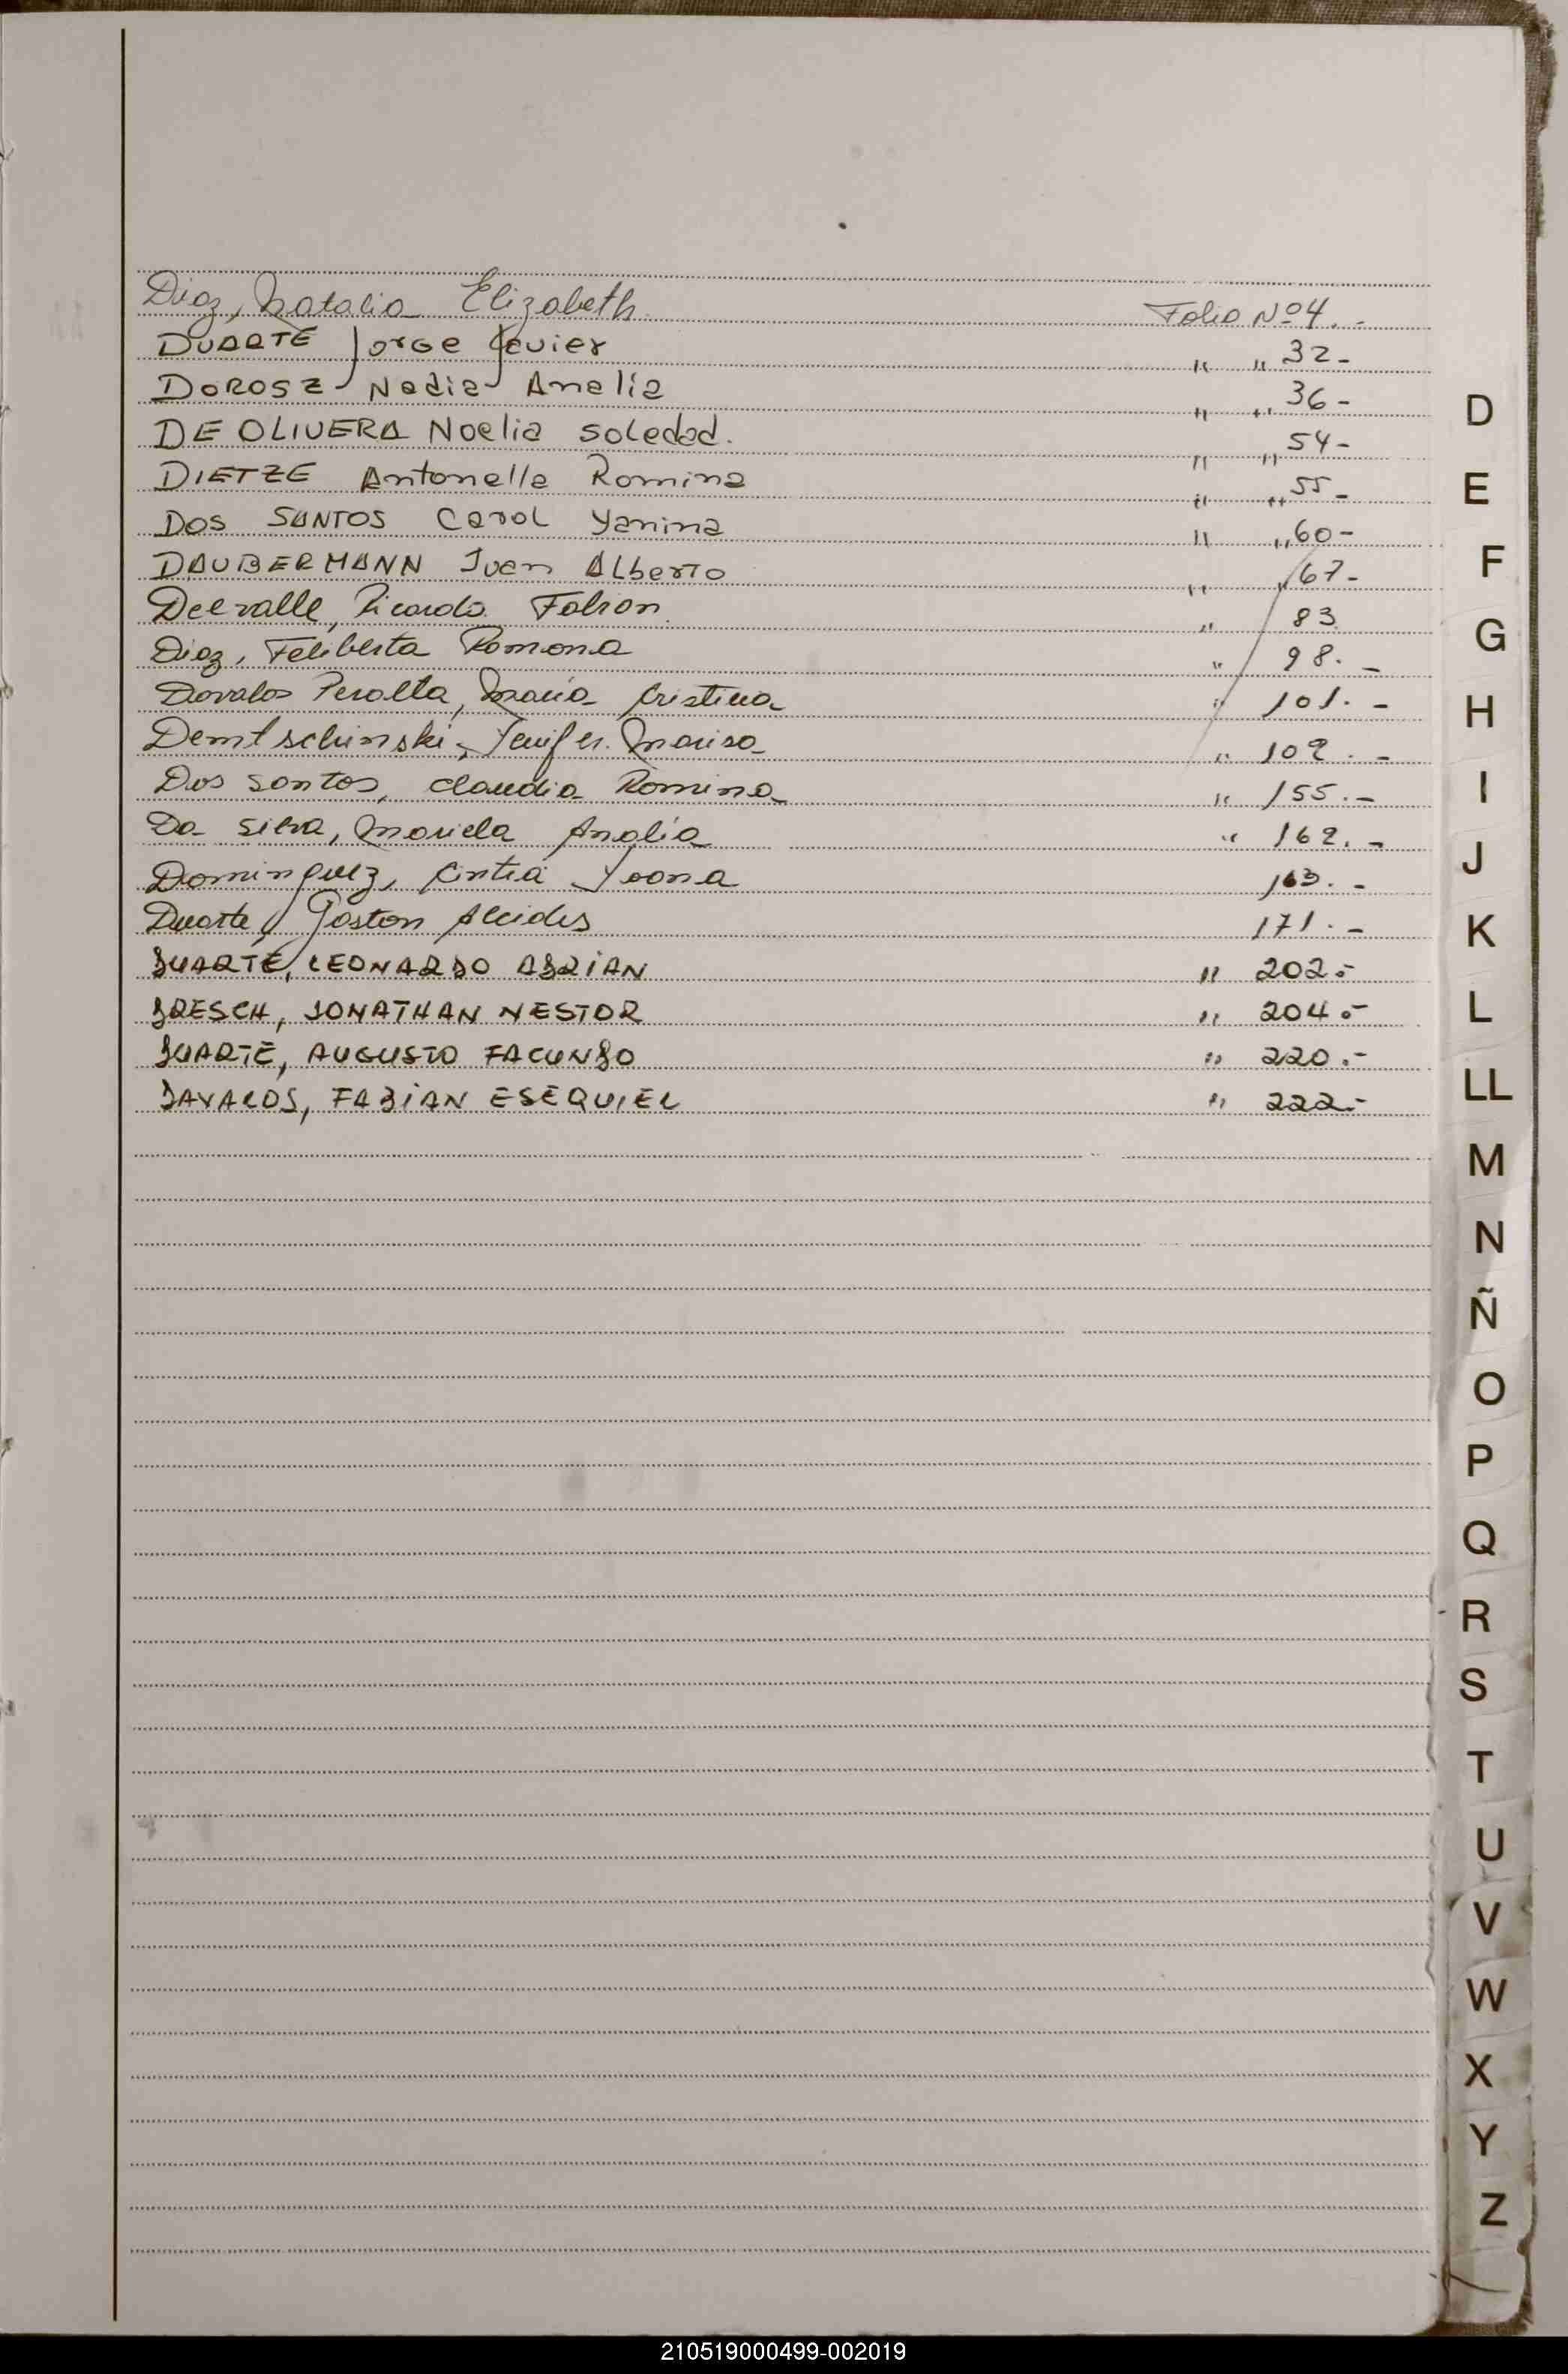 Diaz, Natalia Elizabeth Folio Nº 4.-
DUARTE Jorge Javier " " 32-
DOROSZ Nadia Analia " " 36-
DE OLIVERA Noelia Soledad. " " 54-
DIETZE Antonella Romina " " 55-
DOS SANTOS Carol Yanina " " 60-
DAUBERMANN Ivan Alberto " " 67-
Delvalle, Ricardo Fabian " 83
Diaz, Feliberta Ramona " 98.-
Davalos Peralta, Maria Cristina " 101.-
Demtschinski, Yenifer Marisa " 102.-
Dos Santos, Claudia Romina " 155.-
Da Silva, Mariela Analia " 162.-
Dominguez, Cintia Yoana 163.-
Duarte, Gaston Alcides 171.-
DUARTE, LEONARDO ADRIAN " 202.-
DRESCH, JONATHAN NESTOR " 204.-
DUARTE, AUGUSTO FACUNDO " 220.-
DAVALOS, FABIAN ESEQUIEL " 222.-
D
E
F
G
H
I
J
K
L
LL
M
N
Ñ
O
P
Q
R
S
T
U
V
W
X
Y
Z
210519000499-002019